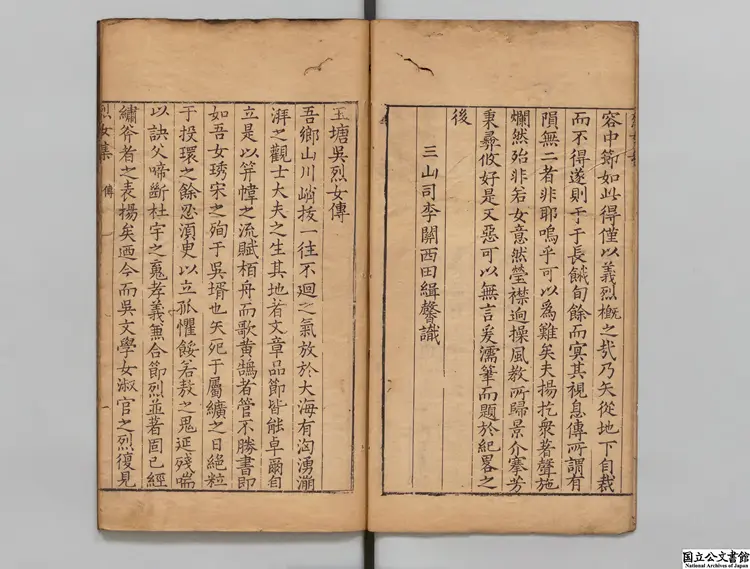 容中節如此得僅以義烈概之哉乃矢從地下自裁
而不得遂則于于長餓旬餘而寞其視息傳所謂有
隕無二者非耶嗚乎可以爲難矣夫揚扢衆著聲施
爛然殆非若女意然瑩襟逈操風教所歸景介搴芳
秉彛攸好是又惡可以無言爰濡筆而題於紀畧之
後
三山司李關西田緝馨識
玉塘吳烈女傳
吾鄉山川峭拔一往不迴之氣放於大海有洶湧漰
湃之觀士大夫之生其地者文章品節皆能卓爾自
立是以笄幃之流賦栢舟而歌黄鵠者管不勝書即
如吾女琇宋之殉于吳壻也矢死于屬纊之日絕粒
于投環之餘忍湏臾以立孤懼餒若敖之鬼延殘喘
以訣父啼斷杜宇之䰟孝義兼合節烈並著固已經
繡斧者之表楊矣廼今而吳文學女淑官之烈復見
烈女集
傳
国立公文書館
National Archives of Japan